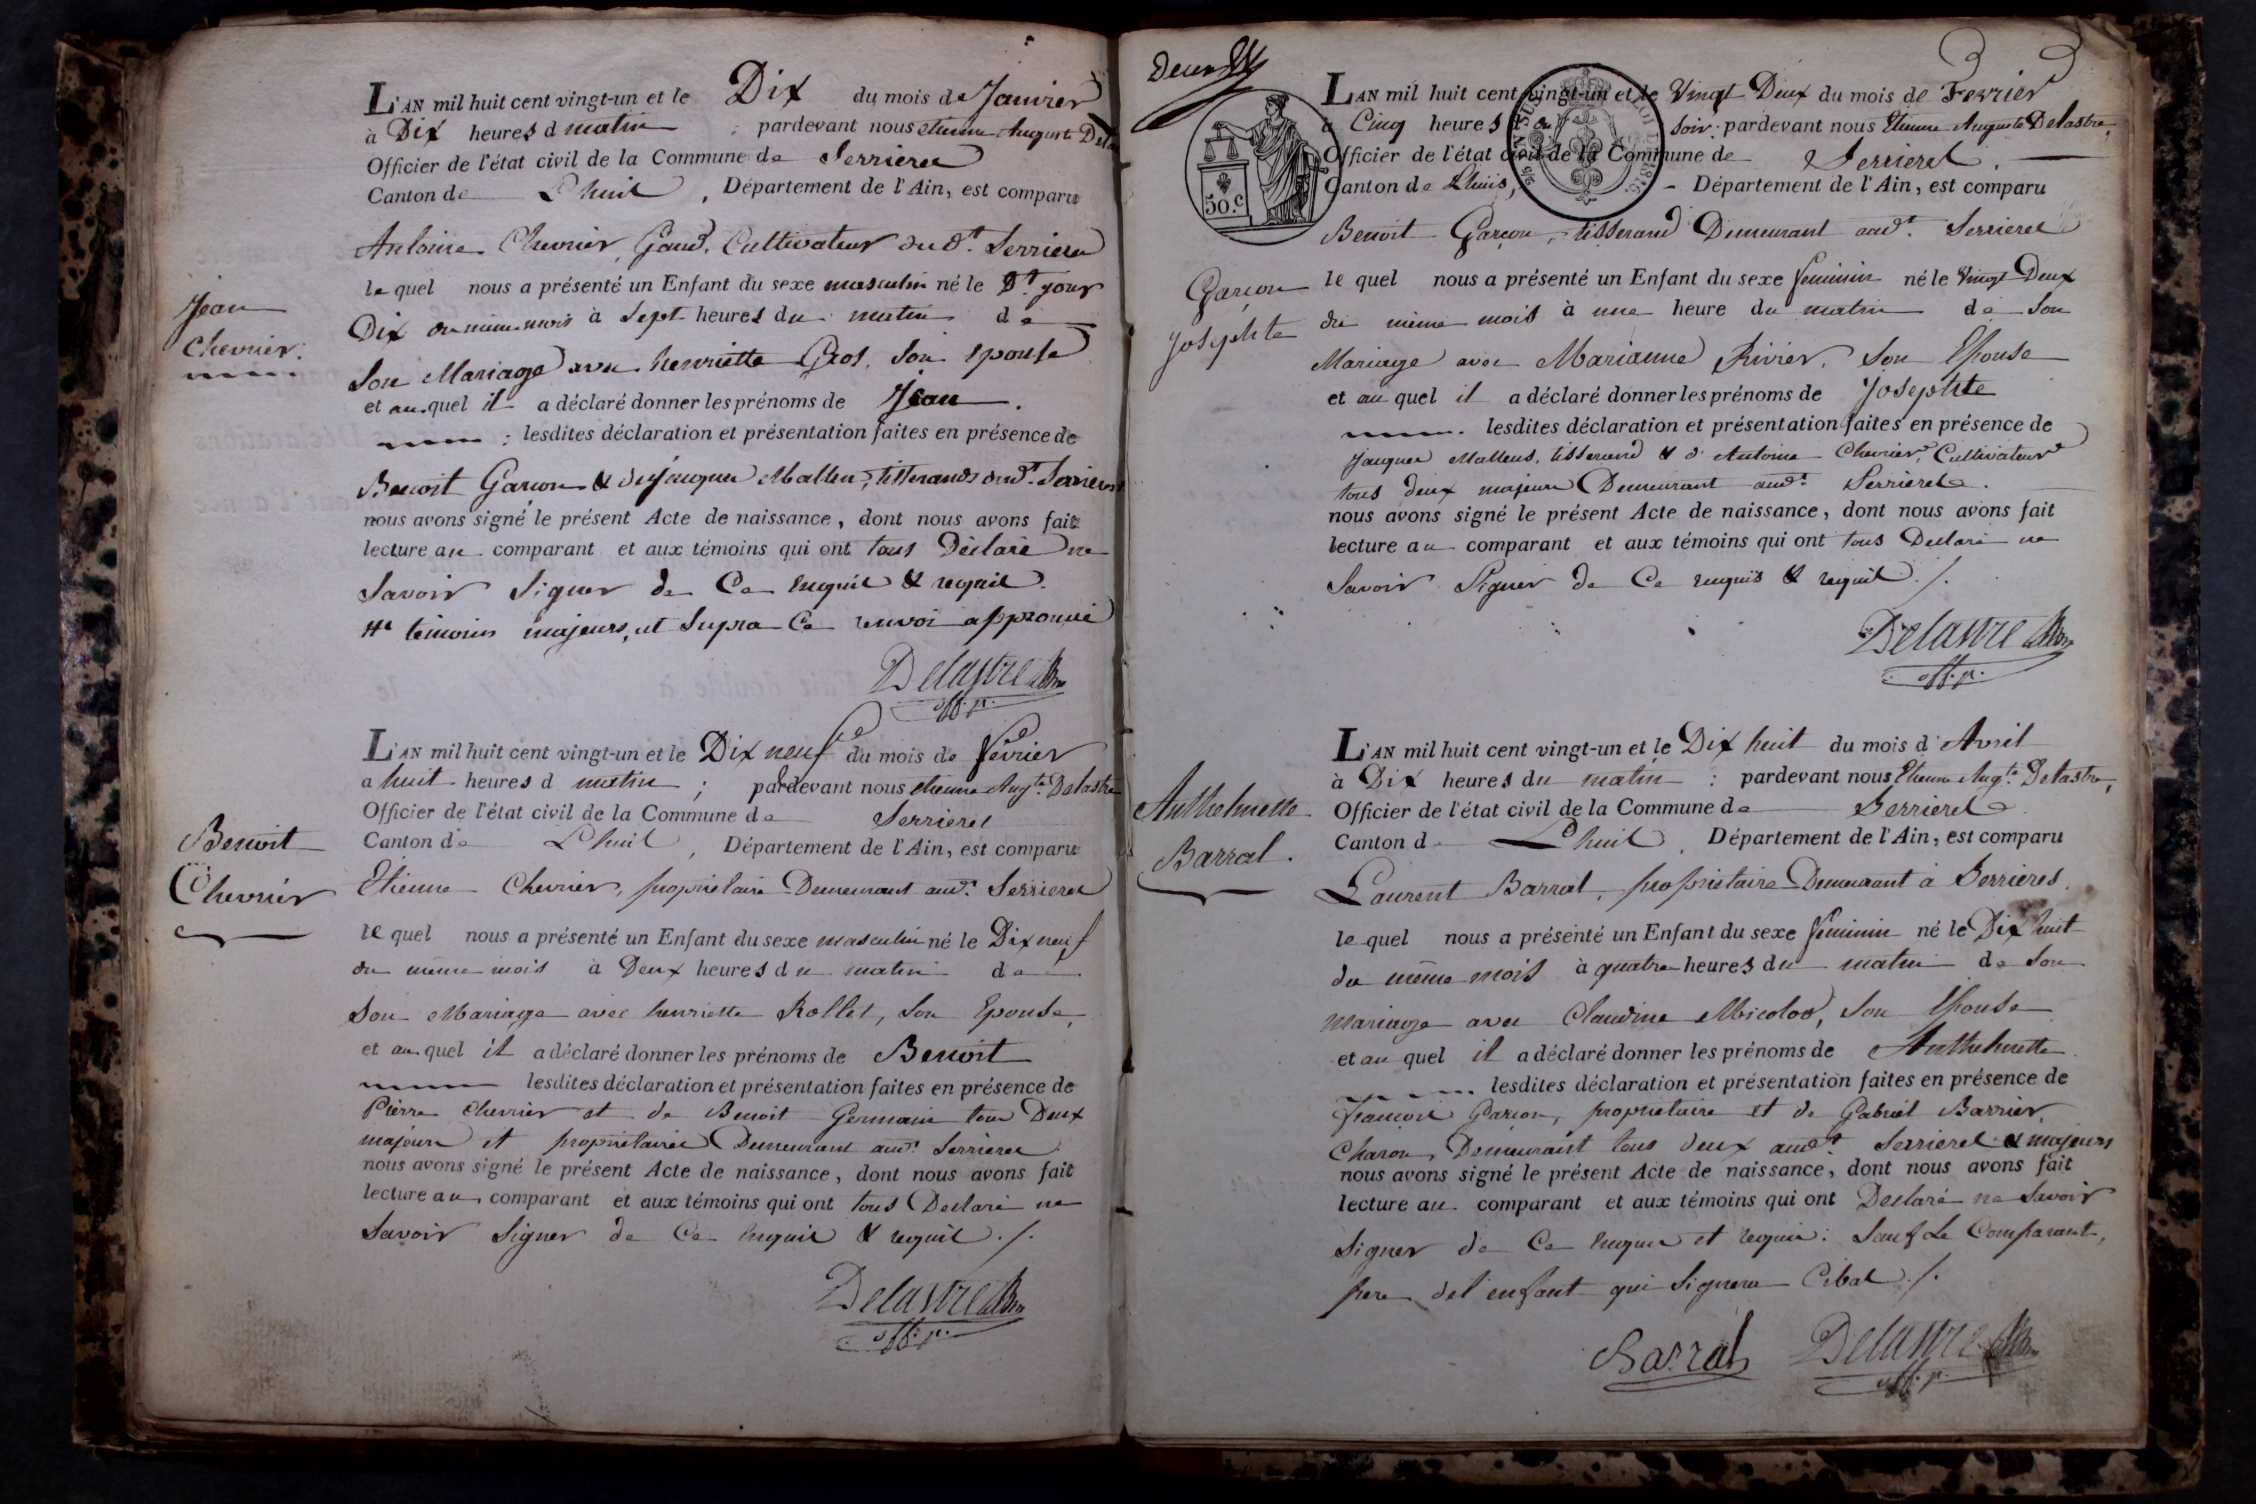 L'AN mil huit cent vingt-un et le Dix du mois de Janvier
à Dix heures d matin ; pardevant nous etienne Auguste
Officier de l'état civil de la Commune de Serrieres
Canton de Lhuis, Département de l'Ain, est comparu
Antoine Chevrier, Cultivateur dudt. Serrieres
le quel nous a présenté un Enfant du sexe masculin né le dt. jour
Dix du même mois à Sept heures du matin de
Son Mariage avec henriette Gros, Son epouse
et au quel il a déclaré donner les prénoms de Jean.
; lesdites déclaration et présentation faites en présence de
Benoit Garcon & de Jacques Mallen, tisserands audt. Serrieres
nous avons signé le présent Acte de naissance, dont nous avons fait
lecture au comparant et aux témoins qui ont tous Déclaré ne
Savoir Signer de Ce enquis & requis.
temoins majeurs, ut Supra Ce renvoi approuvé
Delastre
Jean
Chevrier.
L'AN mil huit cent vingt-un et le Dix neuf du mois de février
a huit heures d matin ; pardevant nous etienne Augte. Delastre
Officier de l'état civil de la Commune de Serrieres
Canton de Lhuis, Département de l'Ain, est comparu
Etienne Chevrier, proprietaire Demeurant audt. Serrieres
le quel nous a présenté un Enfant du sexe masculin né le Dix neuf
du même mois à Deux heures du matin de
Son Mariage avec henriette Rollet, Son Epouse,
et au quel il a déclaré donner les prénoms de Benoit
lesdites déclaration et présentation faites en présence de
Pierre Chevrier et de Benoit Germain tous Deux
majeurs et proprietaires Demeurant audt. Serrieres
nous avons signé le présent Acte de naissance, dont nous avons fait
lecture au comparant et aux témoins qui ont tous Declaré ne
Savoir Signer de Ce enquis & requis ./.
Delastre
Benoit
Chevrier
L'AN mil huit cent vingt-un et le Vingt Deux du mois de Fevrier
à Cinq heures du soir; pardevant nous Etienne Auguste Delastre,
Officier de l'état civil de la Commune de Serrieres.
Canton de Lhuis, Département de l'Ain, est comparu
50.c
Benoit Garcon, tisserand Demeurant audt. Serrieres
le quel nous a présenté un Enfant du sexe feminin né le Vingt Deux
du même mois à une heure du matin de Son
Mariage avec Marianne Rivier, Son Epouse
et au quel il a déclaré donner les prénoms de Josephte
lesdites déclaration et présentation faites en présence de
Jacques Mallens, tisserand & d'Antoine Chevrier, Cultivateur
tous deux majeurs Demeurant audt. Serrieres.
nous avons signé le présent Acte de naissance, dont nous avons fait
lecture au comparant et aux témoins qui ont tous Declaré ne
Savoir Signer de Ce enquis & requis ./.
Delastre
Garcon
Josephte
L'AN mil huit cent vingt-un et le Dix huit du mois d'Avril
à Dix heures du matin : pardevant nous Etienne Augte. Delastre,
Officier de l'état civil de la Commune de Serrieres
Canton d Lhuis, Département de l'Ain, est comparu
Laurent Barral, proprietaire Demeurant à Serrieres.
le quel nous a présenté un Enfant du sexe feminin né le Dix huit
du même mois à quatre heures du matin de Son
mariage avec Claudine Micolod, Son Epouse
et au quel il a déclaré donner les prénoms de Anthelmette
lesdites déclaration et présentation faites en présence de
francois Garcon, proprietaire et de Gabriel Barrier,
Charon, Demeurant tous deux audt. Serrieres & majeurs
nous avons signé le présent Acte de naissance, dont nous avons fait
lecture au comparant et aux témoins qui ont Declaré ne Savoir
Signer de Ce enquis et requis: Sauf Le Comparant,
pere de l'enfant qui Signera Cibas ./.
Barral Delastre
Anthelmette
Barral.